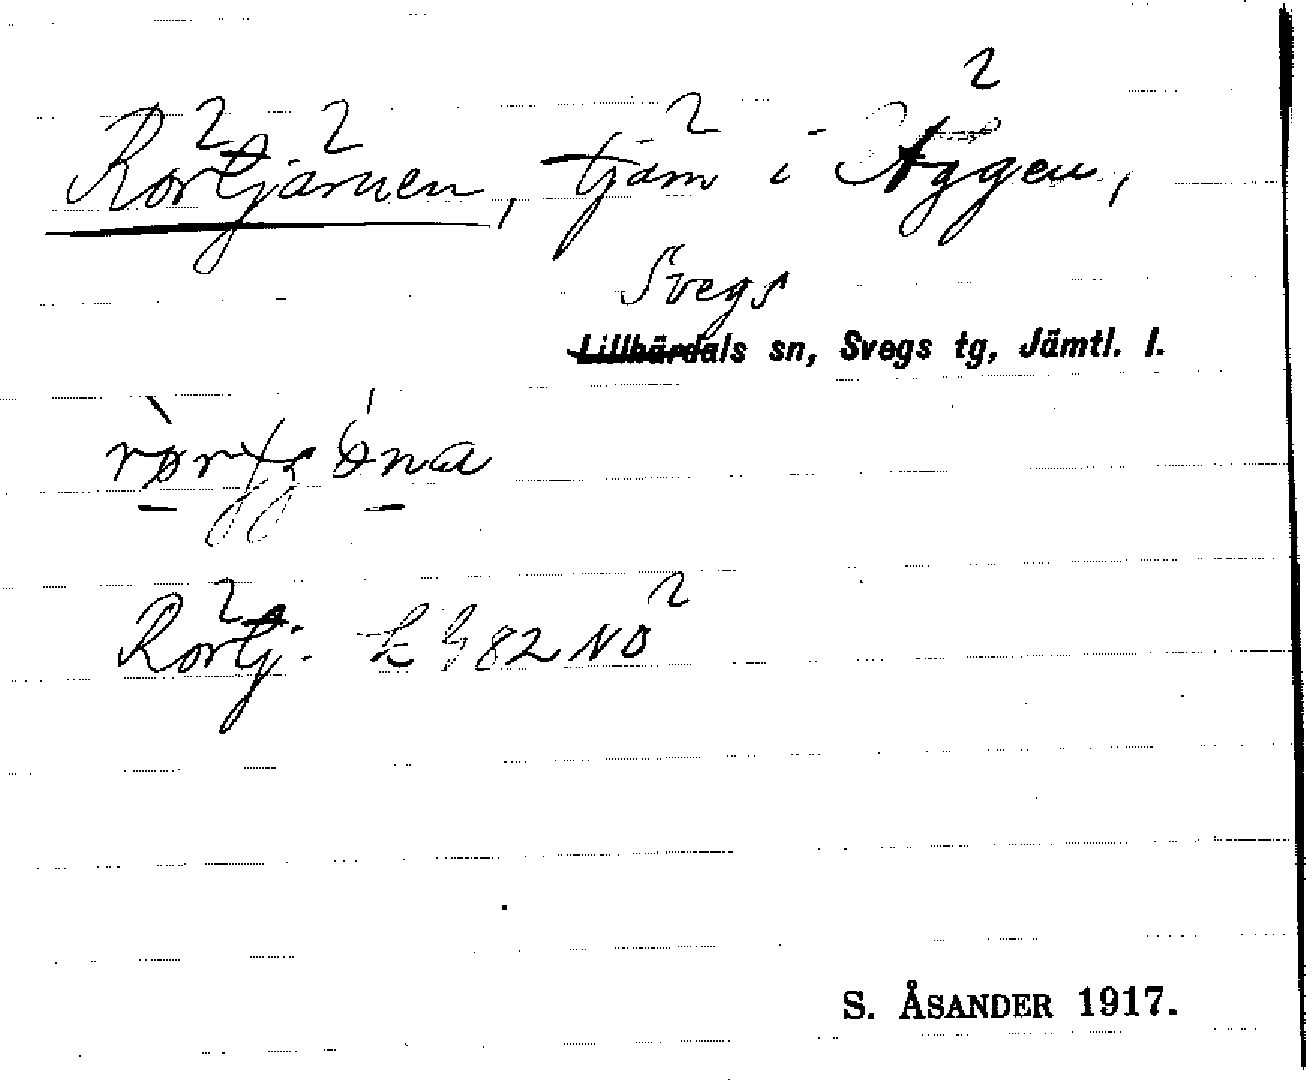 Rörtjärnen, tjärn i Äggen,
Svegs
Lillhärdals sn, Svegs tg, Jämtl. l.
Rörtj. k 982 NÖ
S. ÅSANDER 1917.